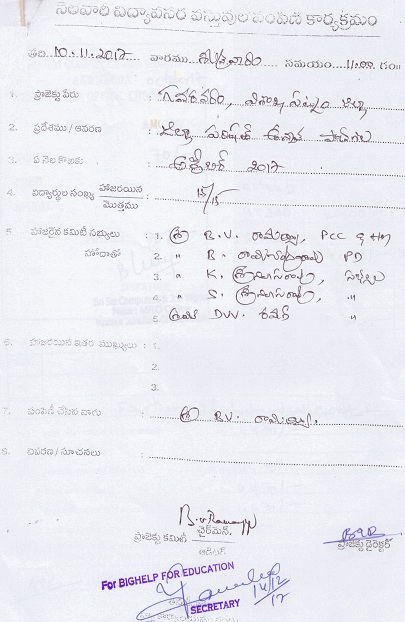 నెలవారి విద్యావసర వస్తువుల పంపిణి కార్యక్రమం
తేది 10.11.2017 వారము శుక్రవారం సమయం 11.00 గం॥
1. ప్రాజెక్టు పేరు : గవరవరం, విశాఖపట్నం జిల్లా
2. ప్రదేశము / ఆవరణ : జిల్లా పరిషత్ ఉన్నత పాఠశాల
3. ఏ నెల కొఱకు : అక్టోబర్ 2017
4. విద్యార్థుల సంఖ్య హాజరయిన / మొత్తము : 15/15
5. హాజరైన కమిటీ సభ్యులు : 1. శ్రీ B.V. రామయ్య, PCC & HM
హోదాతో 2. " B. PD
3. " K. శ్రీనివాసరావు, సభ్యులు
4. " S. శ్రీనివాసరావు, "
5. శ్రీమతి DVV. "
6. హాజరయిన ఇతర ముఖ్యులు : 1.
2.
3.
7. పంపిణీ చేసిన వారు : శ్రీ B.V. రామయ్య.
8. వివరణ / సూచనలు :
B.V.Ramayya
ప్రాజెక్టు కమిటీ ఛైర్మెన్.
ప్రాజెక్టు డైరెక్టర్
ఆడిటర్
For BIGHELP FOR EDUCATION
14/12/17
SECRETARY